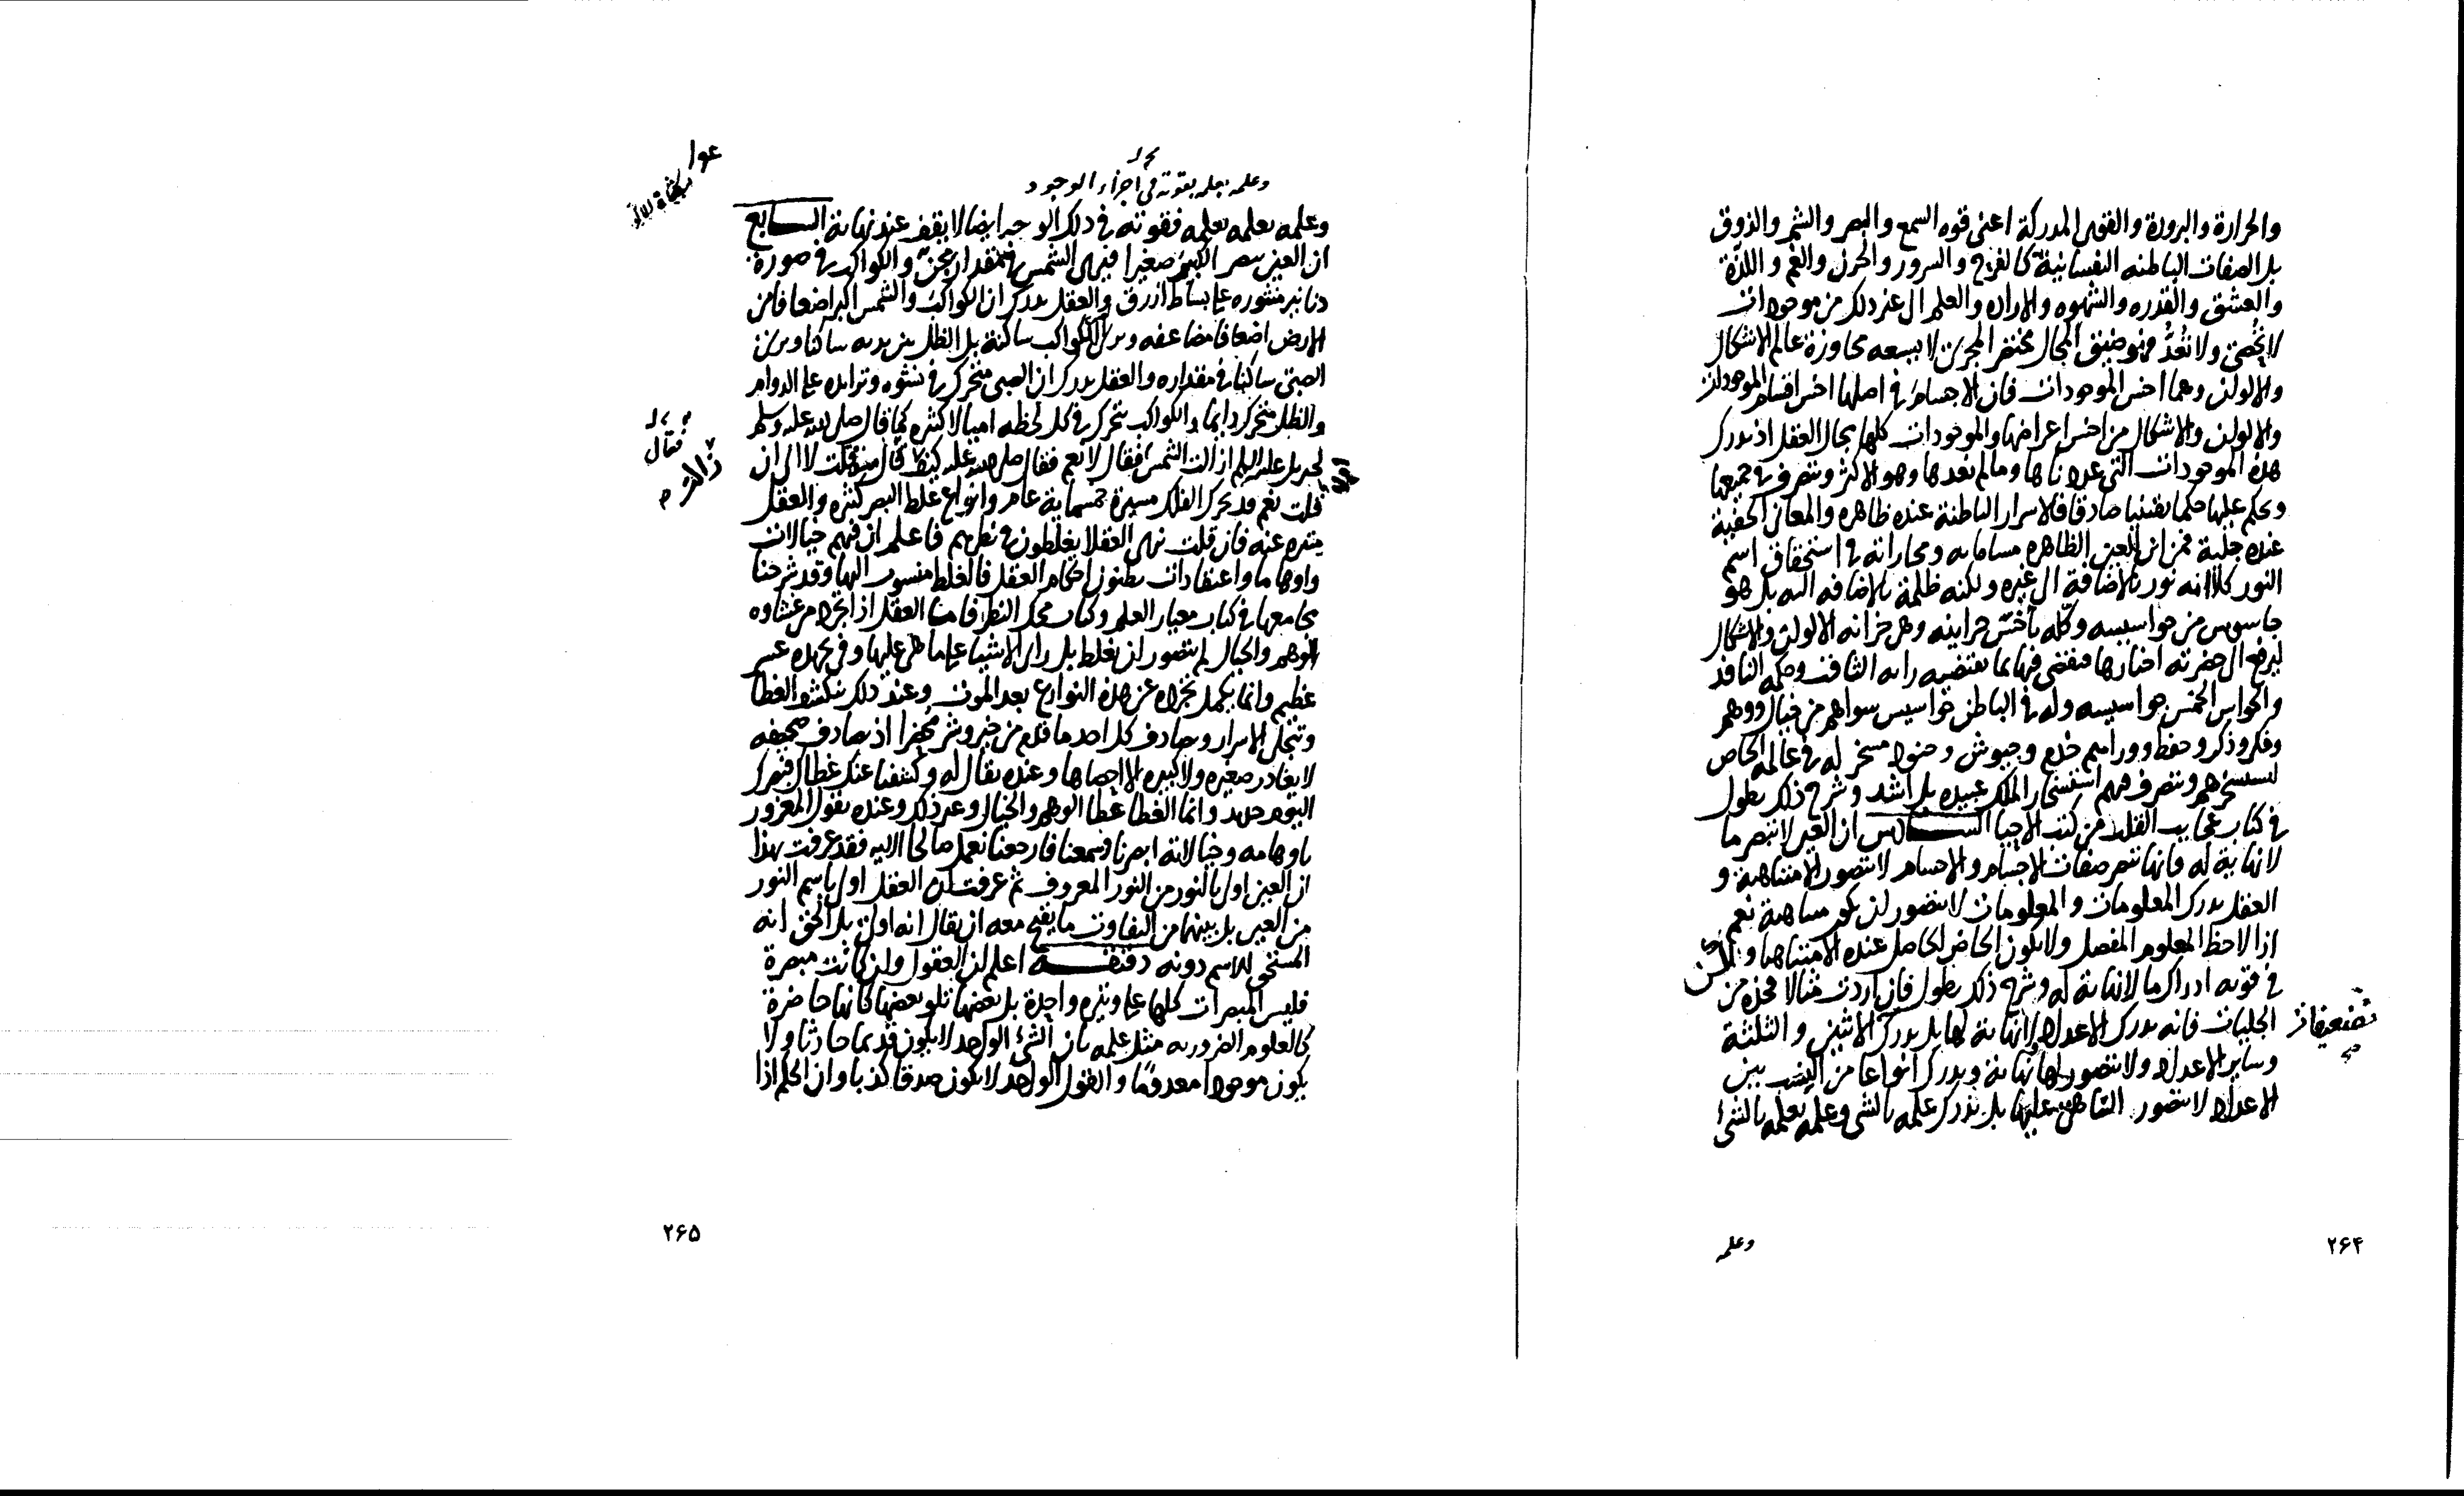 والحرارة والبرودة والقوى المدركة اعنى قوه السمع والبصر والشم والذوق
بل الصفات الباطنه النفسانية كالفرح والسرور والحزن والغم واللذة
والعشق والقدره والشهوه والاراده والعلم الى غير ذلك من موجودات
لا تحصى ولا تعد فهو ضيق المجال مختصر المجرى لا يسعه مجاوزة عالم الاشكال
والالوان وهما اخس الموجودات فان الاجسام فى اصلها اخس اقسام الموجودات
والالوان والاشكال من اخس اعراضها والموجودات كلها مجال العقل اذ يدرك
هذه الموجودات التى عددناها وما لم نعدها وهو الاكثر ويتصرف فى جميعها
ويحكم عليها حكما يقينيا صادقا فالاسرار الباطنة عنده ظاهره والمعانى الخفية
عنده جلية فمن اين للعين الظاهره مساماته ومجاراته فى استحقاق اسم
النور كلا انه نور بالاضافة الى غيره ولكنه ظلمة بالاضافه اليه بل هو
جاسوس من جواسيسه وكله باخس خزاينه وهى خزانه الالوان والاشكال
ليرفع الى حضرته اخبارها فيقضى فيها بما يقتضيه رايه الثاقب وحكمه النافذ
والحواس الخمس جواسيسه وله فى الباطن جواسيس سواهم من خيال ووهم
وفكر وذكر وحفظ ووراهم خدم وجيوش وجنود مسخر له فى عالمه الخاص
يستسخرهم ويتصرف فيهم استسخار الملك عبيده بل اشد وشرح ذلك يطول
فى كتاب عجايب القلب من كتب الاحيا السادس ان العين لا تبصر ما
لا نهاية له فانها تبصر صفات الاجسام والاجسام لا تتصور الا متناهية و
العقل يدرك المعلومات والمعلومات لا يتصور ان يكون متناهية نعم
اذا لاحظ المعلوم المفصل ولا يكون الحاضر الحاصل عنده الا متناهيا ولكن
فى قوته ادراك ما لا نهاية له وشرح ذلك يطول فان اردت مثالا فخذه من
الجليات فانه يدرك الاعداد لا نهاية لها بل يدرك الاثنين والثلثة
وساير الاعداد ولا يتصور لها نهاية ويدرك انواعا من النسب بين
الاعداد لا يتصور التناهى عليها بل يدرك علمه بالشى وعلمه بعلمه بالشئ
وعلمه
٢۶۴
وعلمه بعلمه بقوته فى اجزاء الوجود
وعلمه بعلمه بعلمه فقوته فى ذلك الوجه ايضا لا يقف عند نهاية السابع
ان العين تبصر الكبير صغيرا فيرى الشمس فى مقدار مجن والكواكب فى صورة
دنانير منثوره على بساط ازرق والعقل يدرك ان الكواكب والشمس اكبر اضعافا من
الارض اضعافا مضاعفه ويرى الكواكب ساكنة بل الظل بين يديه ساكنا ويرى
الصبى ساكنا فى مقداره والعقل يدرك ان الصبى متحرك فى نشوه وتزايده على الدوام
والظل متحرك دايما والكواكب تتحرك فى كل لحظه اميالا كثيره كما قال صلى الله عليه وسلم
لجبريل عليه السلم ازالت الشمس فقال لا نعم فقال صلى الله عليه كيف قال منذ قلت لا الى ان
قلت نعم قد تحرك الفلك مسيرة خمسماية عام وانواع غلط البصر كثيره والعقل
منزه عنه فان قلت نرى العقلا يغلطون فى نظرهم فاعلم ان فيهم خيالات
واوهاما واعتقادات يظنون احكام العقل فالغلط منسوب اليها وقد شرحنا
مجامعها فى كتاب معيار العلم وكتاب محك النظر فاما العقل اذا تجرد من غشاوه
الوهم والخيال لم يتصور ان يغلط بل راى الاشيا على ما هى عليها وفى تجرده عسر
عظيم وانما يكمل تجرده عن هذه النوازع بعد الموت وعند ذلك ينكشف الغطا
وتنجلى الاسرار وصادف كل احد ما قدم من خير وشر محضرا اذ يصادف صحيفه
لا يغادر صغيره ولا كبيره الا احصاها وعنده يقال له وكشفنا عنك غطاك فبصرك
اليوم حديد وانما الغطا غطا الوهم والخيال وغير ذلك وعنده يقول المغرور
باوهامه وخيالاته ابصرنا وسمعنا فارجعنا نعمل صالحا الايه فقد عرفت بهذا
ان العين اولى بالنور من النور المعروف ثم عرفت ان العقل اولى باسم النور
من العين بل بينهما من التفاوت ما يصح معه ان يقال انه اولى بل الحق انه
المستحق للاسم دونه دقيقة اعلم ان العقول وان كانت مبصرة
فليس المبصرات كلها على وتيره واحدة بل بعضها تلو بعضها كانها حاضرة
كالعلوم الضروريه مثل علمه بان الشئ الواحد لا يكون قديما حادثا ولا
يكون موجودا معدوما والقول الواحد لا يكون صدقا كذبا وان الحكم اذا
فقال
٢۶۵